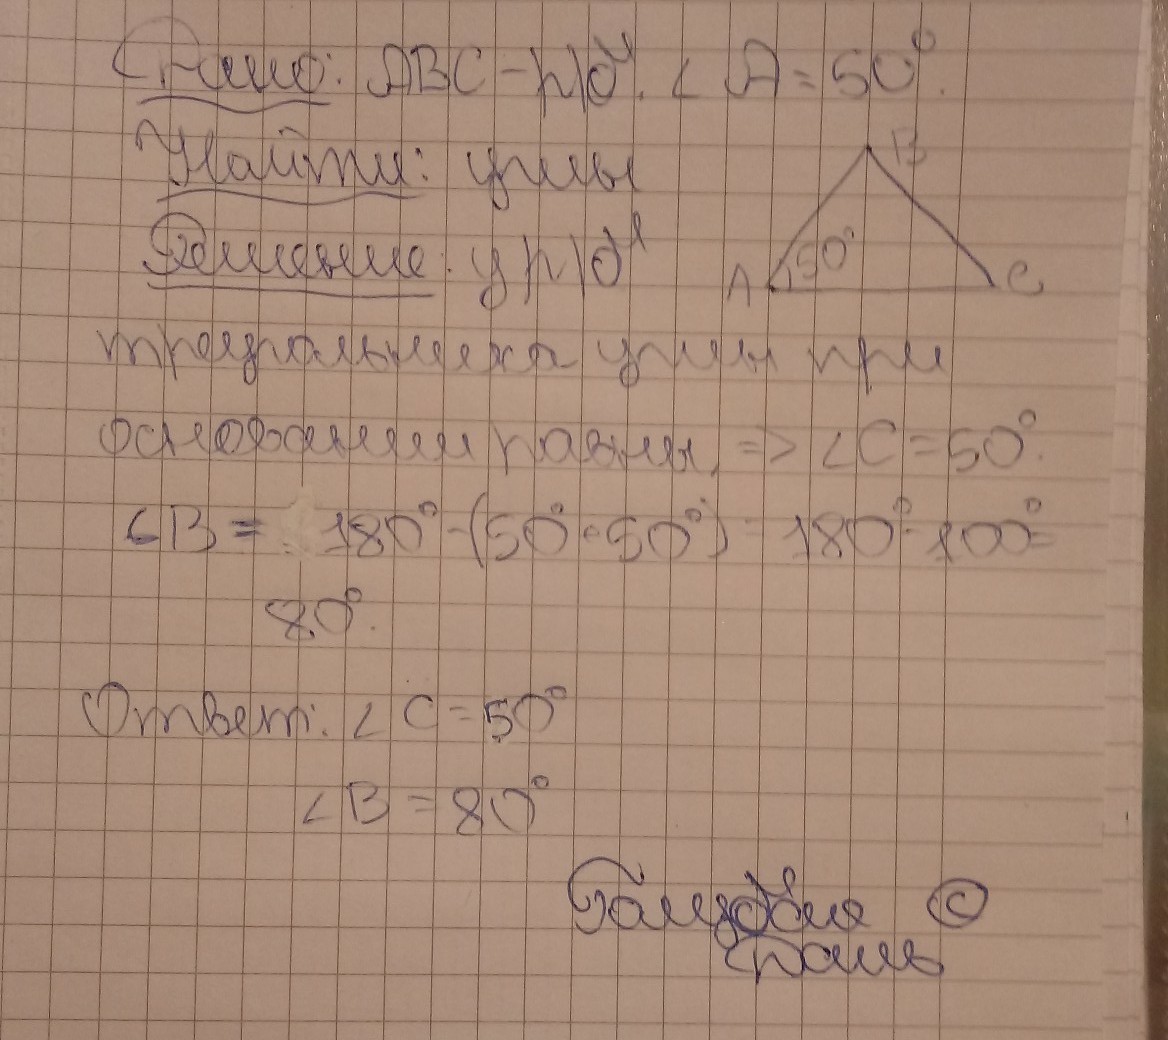 Дано: ABC - р/бй. ∠ A = 50°.
Найти: углы
Решение: у р/бй
B
A 50° C
треугольника углы при
основании равны, => ∠C = 50°.
∠B = 180° - (50° + 50°) = 180° - 100° =
80°.
Ответ: ∠ C = 50°
∠B = 80°
©
грань